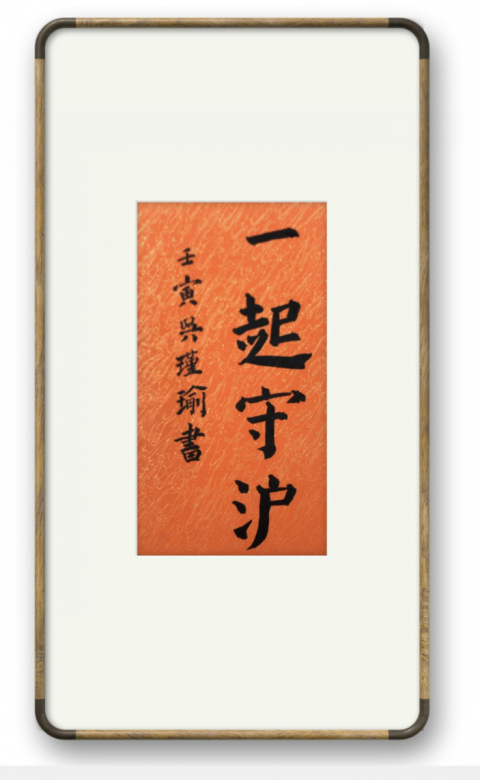 一起守沪
壬寅吳瑾瑜書